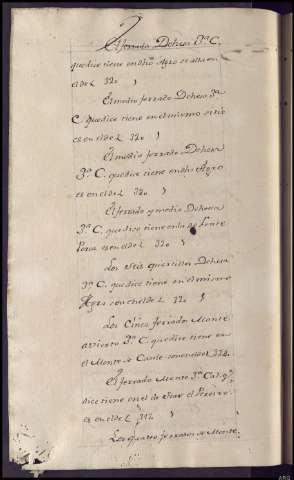 El ferrado Dehesa 3ª C.
que dice tiene en dho Agro es alla en
el del 320
El medio ferrado Dehesa 3ª
C. que dice tiene en el mismo sitio
es en el de 320
El medio ferrado Dehesa
3ª C. que dice tiene en dho Agro
es en el de 320
El ferrado y medio Dehesa
3ª C. que dice tiene en la de
es en el de 320
Los seis quartillos Dehesa
3ª C. que dice tiene en el mismo
Agro son en el de 320
Los Cinco ferrados Monte
avierto 3ª C. que dice tiene en
el Monte de son en el de 328
El ferrado Monte 3ª Cal. q
dice tiene en el de
es en el de 312
Los quatro ferrados de Monte